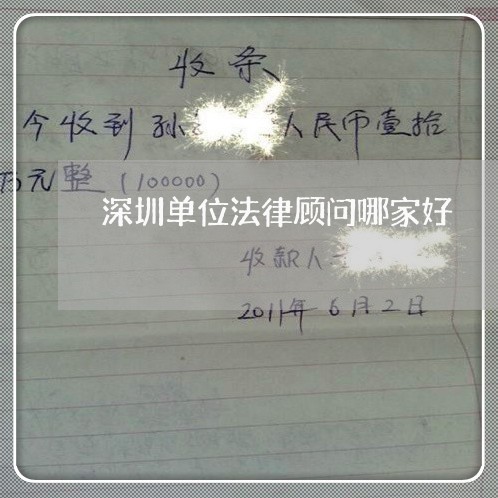 收条
今收到孙 人民币壹拾
万元整(100000)
深圳单位法律顾问哪家好
收款人
2011年6月2日